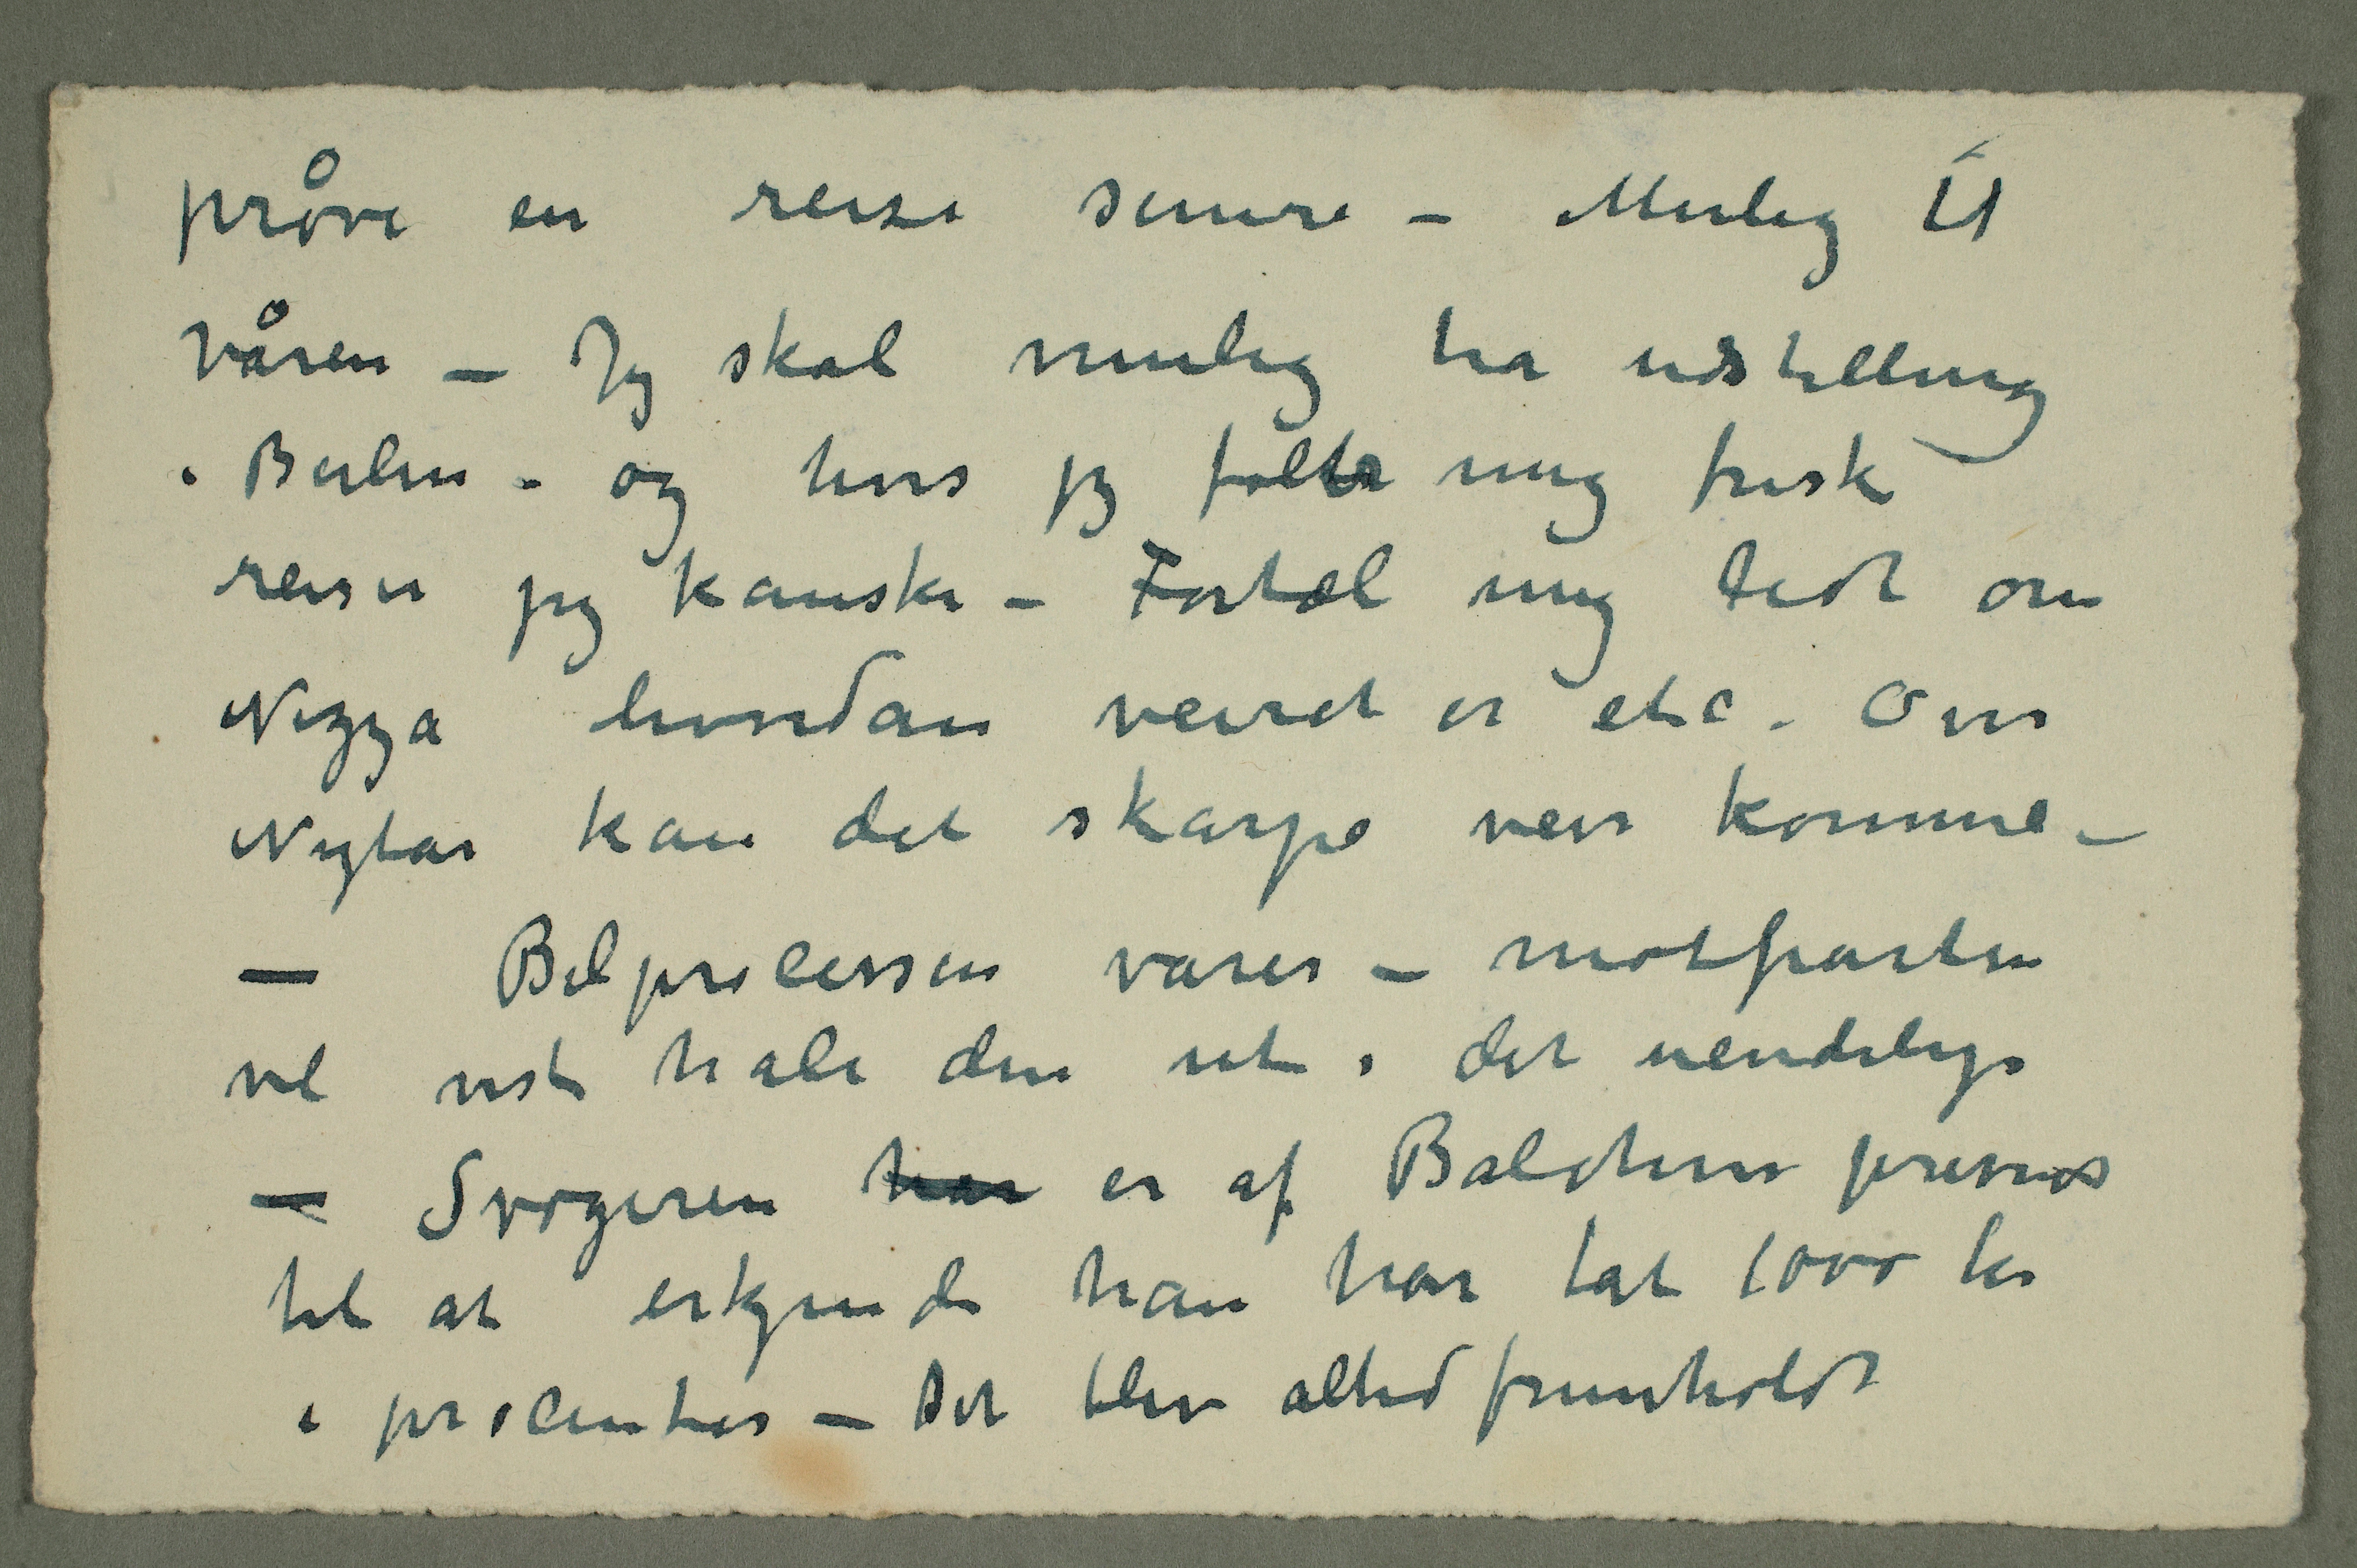 prøve en reise senere – Mulig til
våren – Jeg skal mulig ha udstilling
i Berlin – og hvis jeg føler mig frisk
reiser jeg kanske – Fortæl mig lidt om
Nizza hvordan veiret er etc. Over
Nytår kan det skarpe veir komme –
– Bilprocessen varer – motparten
vil vist hale den ut i det uendelige
– Svogeren har er af Balchens presses
til at erkjende han har tat 1000 kr
i procenter – Det blev altid fremholdt